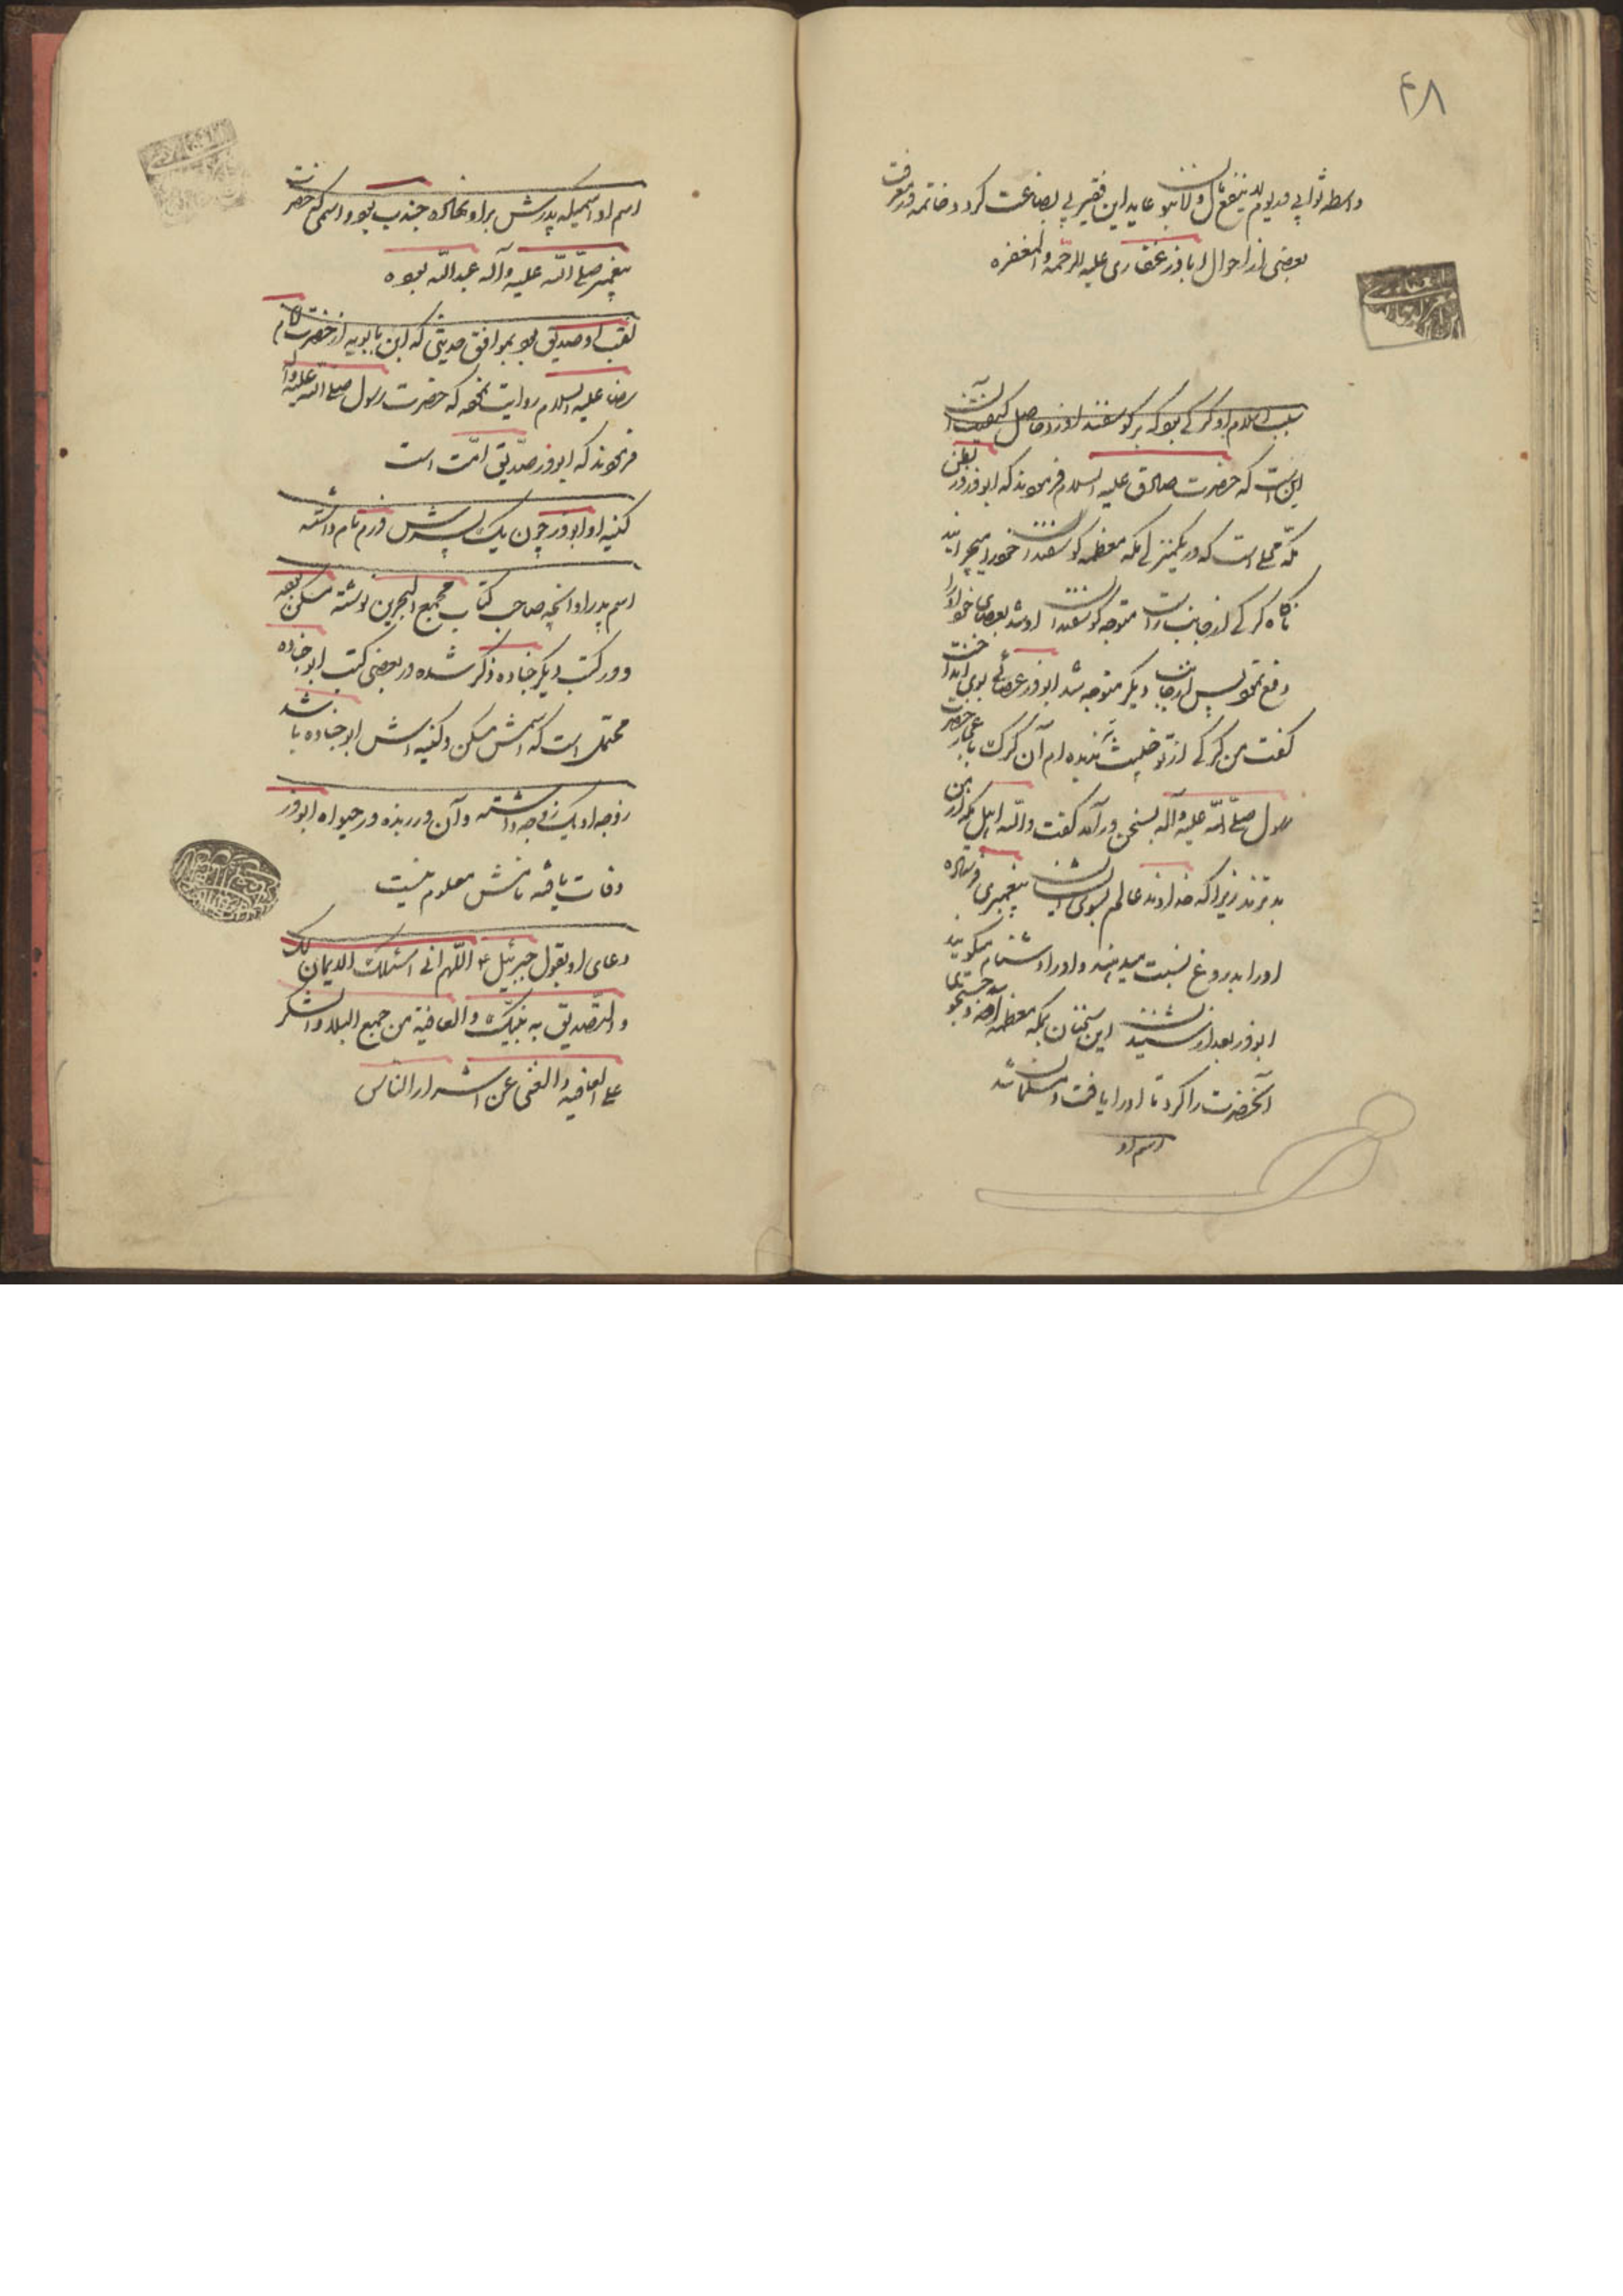 ۴۸
واسطه ثوابی در یوم لا ینفع مال و لا بنون عاید این فقیر بی بضاعت کردد خاتمه در معرفت
بعضی از احوال اباذر غفاری علیه الرحمه و المغفره
سبب اسلام او کرکی بود که بر کوسفند او زد حاصل کیفیت آن
این است که حضرت صادق علیه السلام فرمودند که ابوذر در بطن
مکّه محلی است که در یکمنزلی مکه معظمه کوسفندان خود را میچرانید
ناکاه کرکی از جانب راست متوجه کوسفندان او شد بعصای خود او را
دفع نمود پس از جانب دیکر متوجه شد ابوذر عصائی بوی انداخت
کفت من کرکی از تو خبیث‌تر ندیده‌ام آن کرک باعجاز حضرت
رسول صلّی اللّه علیه و آله بسخن در آمد کفت و اللّه اهل مکه از من
بدترند زیرا که خداوند عالم بسوی ایشان پیغمبری فرستاده
او را بدروغ نسبت میدهند و او را دشنام میکویند
ابوذر بعد از شنیدن این سخنان بمکه معظمه آمده و جستجوی
آنحضرت را کرد تا او را یافت و مسلمان شد
اسم او
اسم او اسمیکه پدرش بر او نهاده جندب بود و اسمی که حضرت
پیغمبر صلّی اللّه علیه و آله عبد اللّه بوده
لقب او صدیق بود بموافق حدیثی که ابن بابویه از حضرت امام
رضا علیه السلام روایت نموده که حضرت رسول صلّی اللّه علیه و آله
فرمودند که ابوذر صدّیق امّت است
کنیه او ابوذر چون یک پسرش ذرّ نام داشته
اسم پدر او آنچه صاحب کتاب مجمع البحرین نوشته مسکن بوده
و در کتب دیکر جناده ذکر شده در بعضی کتب ابو جناده
محتمل است که اسمش مسکن و کنیه اش ابو جناده باشد
زوجه او یک زوجه داشته و آن در ربذه در حیوة ابوذر
وفات یافته نامش معلوم نیست
دعای او بقول جبرئیل ع اللّهم انی اسئلک الایمان بک
و التّصدیق به نبیّک و العافیة من جمیع البلاء و الشکر
علی العافیه و الغنی عن اشرار الناس